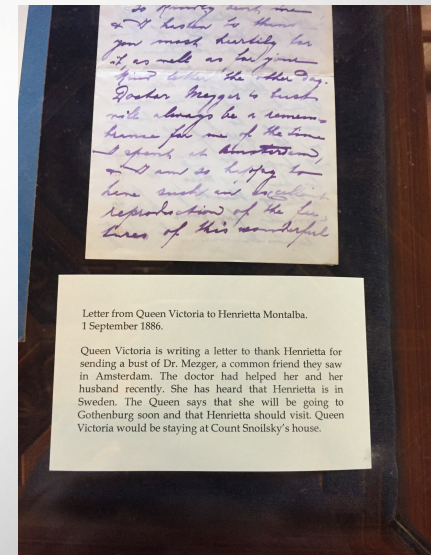 so kindly sent me
& I hasten to thank
you most heartily for
it, as well as for your
kind letter the other day.
Doctor Mezger's bust
will always be a remem-
brance for me of the time
I spent at Amsterdam,
& I am so happy to
have such an excellent
reproduction of the fea-
tures of this wonderful
Letter from Queen Victoria to Henrietta Montalba.
1 September 1886.
Queen Victoria is writing a letter to thank Henrietta for
sending a bust of Dr. Mezger, a common friend they saw
in Amsterdam. The doctor had helped her and her
husband recently. She has heard that Henrietta is in
Sweden. The Queen says that she will be going to
Gothenburg soon and that Henrietta should visit. Queen
Victoria would be staying at Count Snoilsky's house.